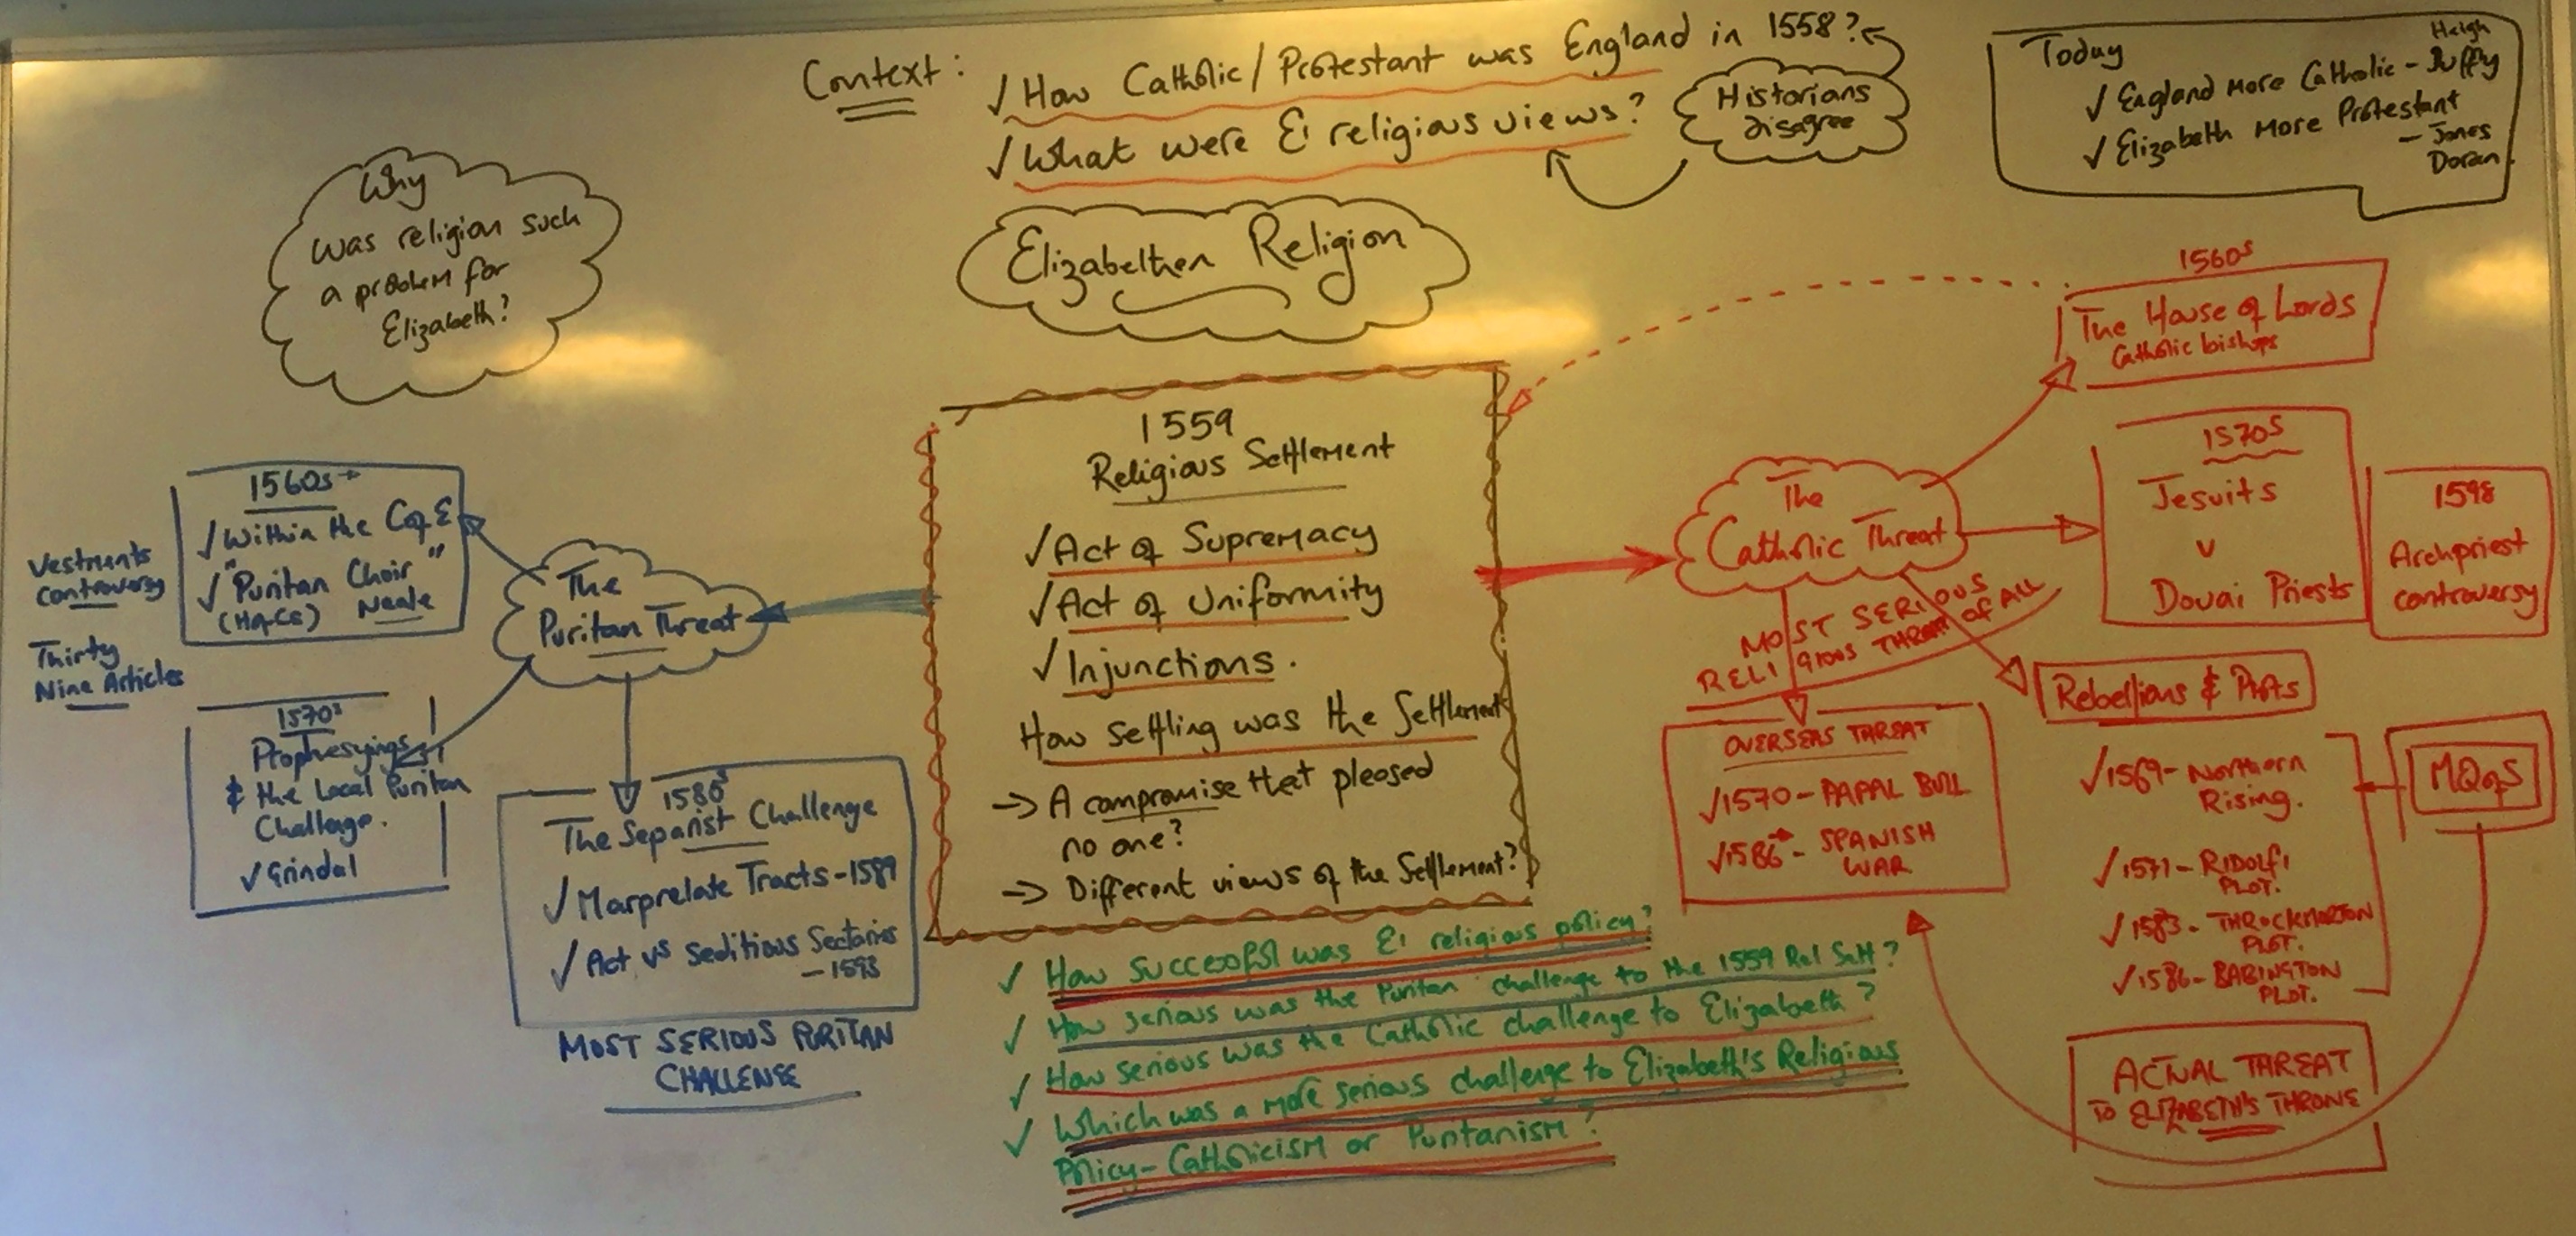 Context:
✓ How Catholic / Protestant was England in 1558?
✓ What were E1 religious views?
Historians
disagree
Today
Haigh
✓ England more Catholic - Duffy
✓ Elizabeth more Protestant
- Jones
Doran.
Why
was religion such
a problem for
Elizabeth?
Elizabethan Religion
1559
Religious Settlement
✓ Act of Supremacy
✓ Act of Uniformity
✓ Injunctions.
How settling was the Settlement
→ A compromise that pleased
no one?
→ Different views of the Settlement?
The
Puritan Threat
1560s →
✓ Within the C of E
✓ "Puritan Choir"
(H of Cs) Neale
Vestments
controversy
Thirty
Nine Articles
1570s
Prophesyings
& the Local Puritan
Challenge.
✓ Grindal
1580s
The Separist Challenge
✓ Marprelate Tracts - 1589
✓ Act vs Seditious Sectaries
- 1593
MOST SERIOUS PURITAN
CHALLENGE
The
Catholic Threat
1560s
The House of Lords
Catholic bishops
1570s
Jesuits
v
Douai Priests
1598
Archpriest
controversy
MOST SERIOUS
RELIGIOUS THREAT OF ALL
OVERSEAS THREAT
✓ 1570 - PAPAL BULL
✓ 1586 → - SPANISH
WAR
Rebellions & Plots
✓ 1569 - Northern
Rising.
✓ 1571 - RIDOLFI
PLOT.
✓ 1583 - THROCKMORTON
PLOT.
✓ 1586 - BABINGTON
PLOT.
MQofS
ACTUAL THREAT
TO ELIZABETH'S THRONE
✓ How successful was E1 religious policy?
✓ How serious was the Puritan challenge to the 1559 Rel Sett?
✓ How serious was the Catholic challenge to Elizabeth?
✓ Which was a more serious challenge to Elizabeth's Religious
Policy - Catholicism or Puritanism?